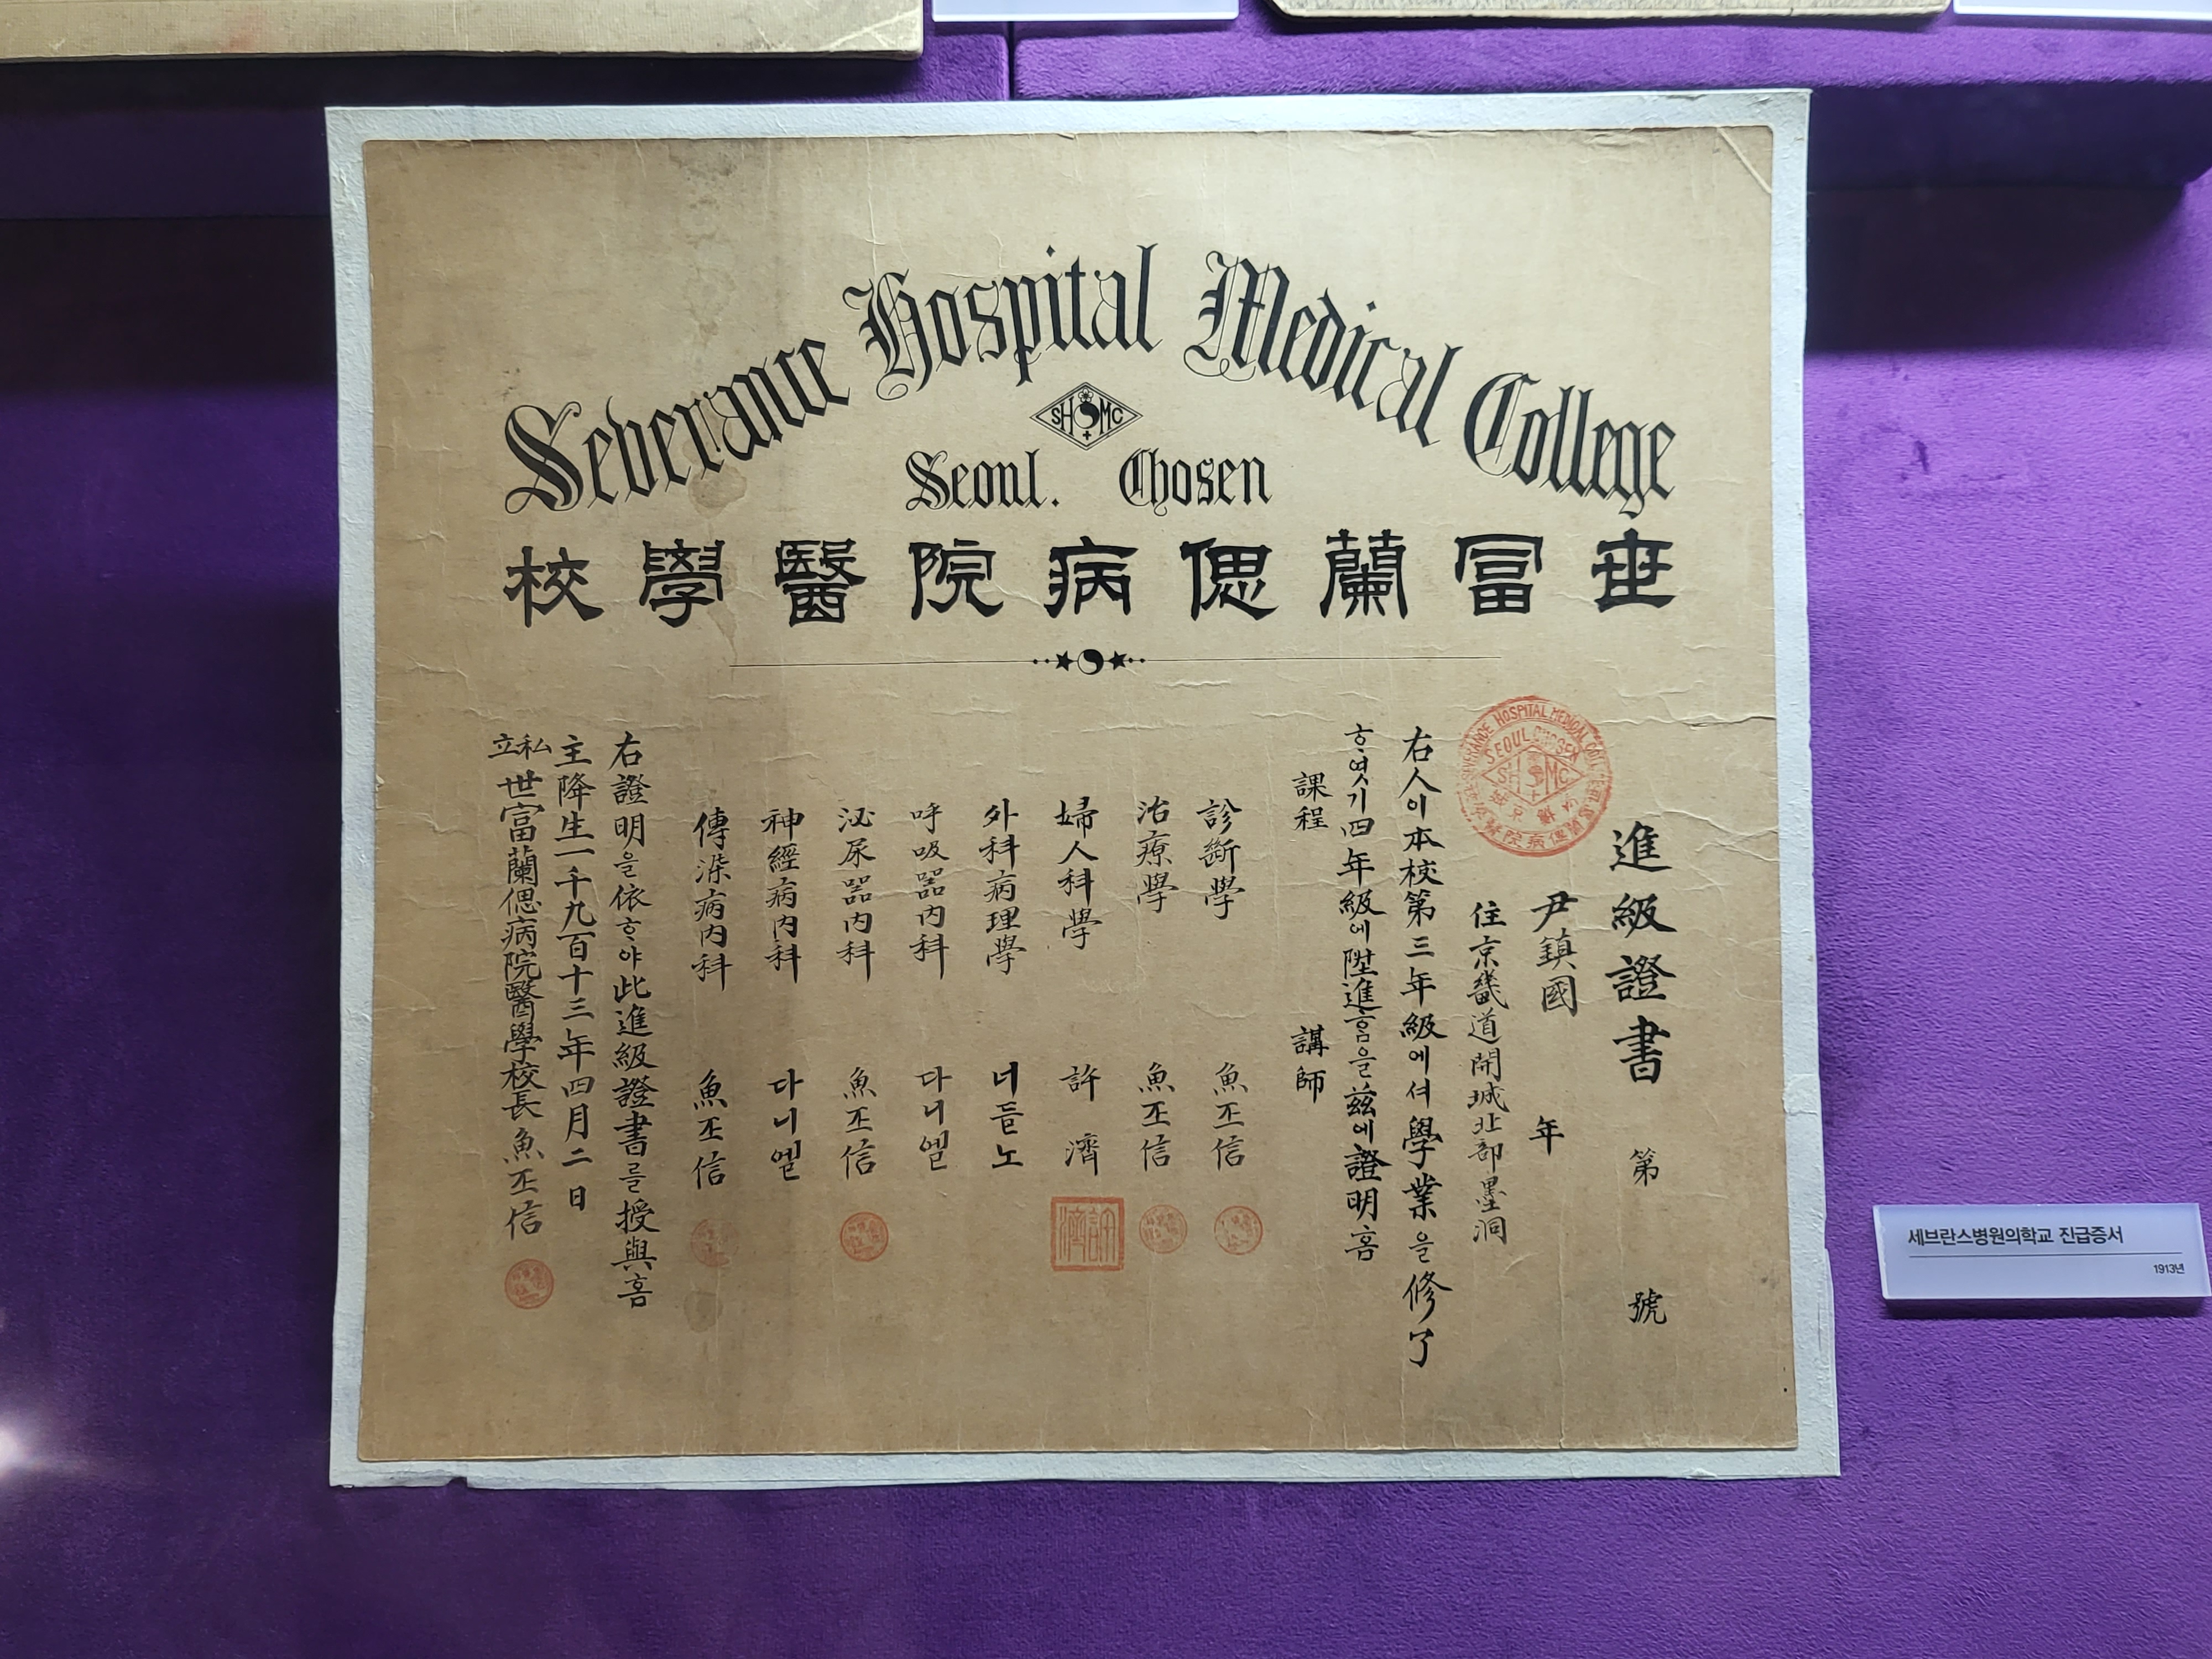 Severance Hospital Medical College
SH MC
Seoul. Chosen
世富蘭偲病院醫學校
進級證書 第 號
尹鎭國 年
住京畿道開城北部墨洞
右人이本校第三年級에셔學業을修了
ᄒᆞ엿기四年級에陞進ᄒᆞᆷ을玆에證明홈
課程 講師
診斷學 魚丕信
治療學 魚丕信
婦人科學 許濟
外科病理學 너들노
呼吸器內科 다니엘
泌尿器內科 魚丕信
神經病內科 다니엘
傳染病內科 魚丕信
右證明을依ᄒᆞ야此進級證書를授與홈
主降生一千九百十三年四月二日
私立世富蘭偲病院醫學校長魚丕信
SEVERANCE HOSPITAL MEDICAL COLLEGE
SEOUL CHOSEN
SH MC
許濟
세브란스병원의학교 진급증서
1913년